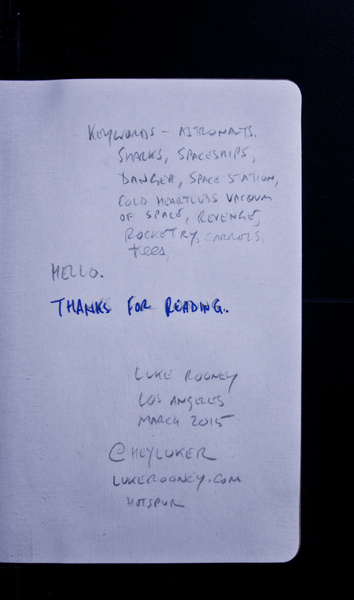 KEYWORDS - ASTRONAUTS.
SHARKS, SPACESHIPS,
DANGER, SPACE STATION,
COLD HEARTLESS VACUUM
OF SPACE, REVENGE,
ROCKETRY, CARROTS,
trees,
HELLO.
THANKS FOR READING.
LUKE ROONEY
LOS ANGELES
MARCH 2015
@HEYLUKER
LUKEROONEY.COM
HOTSPUR